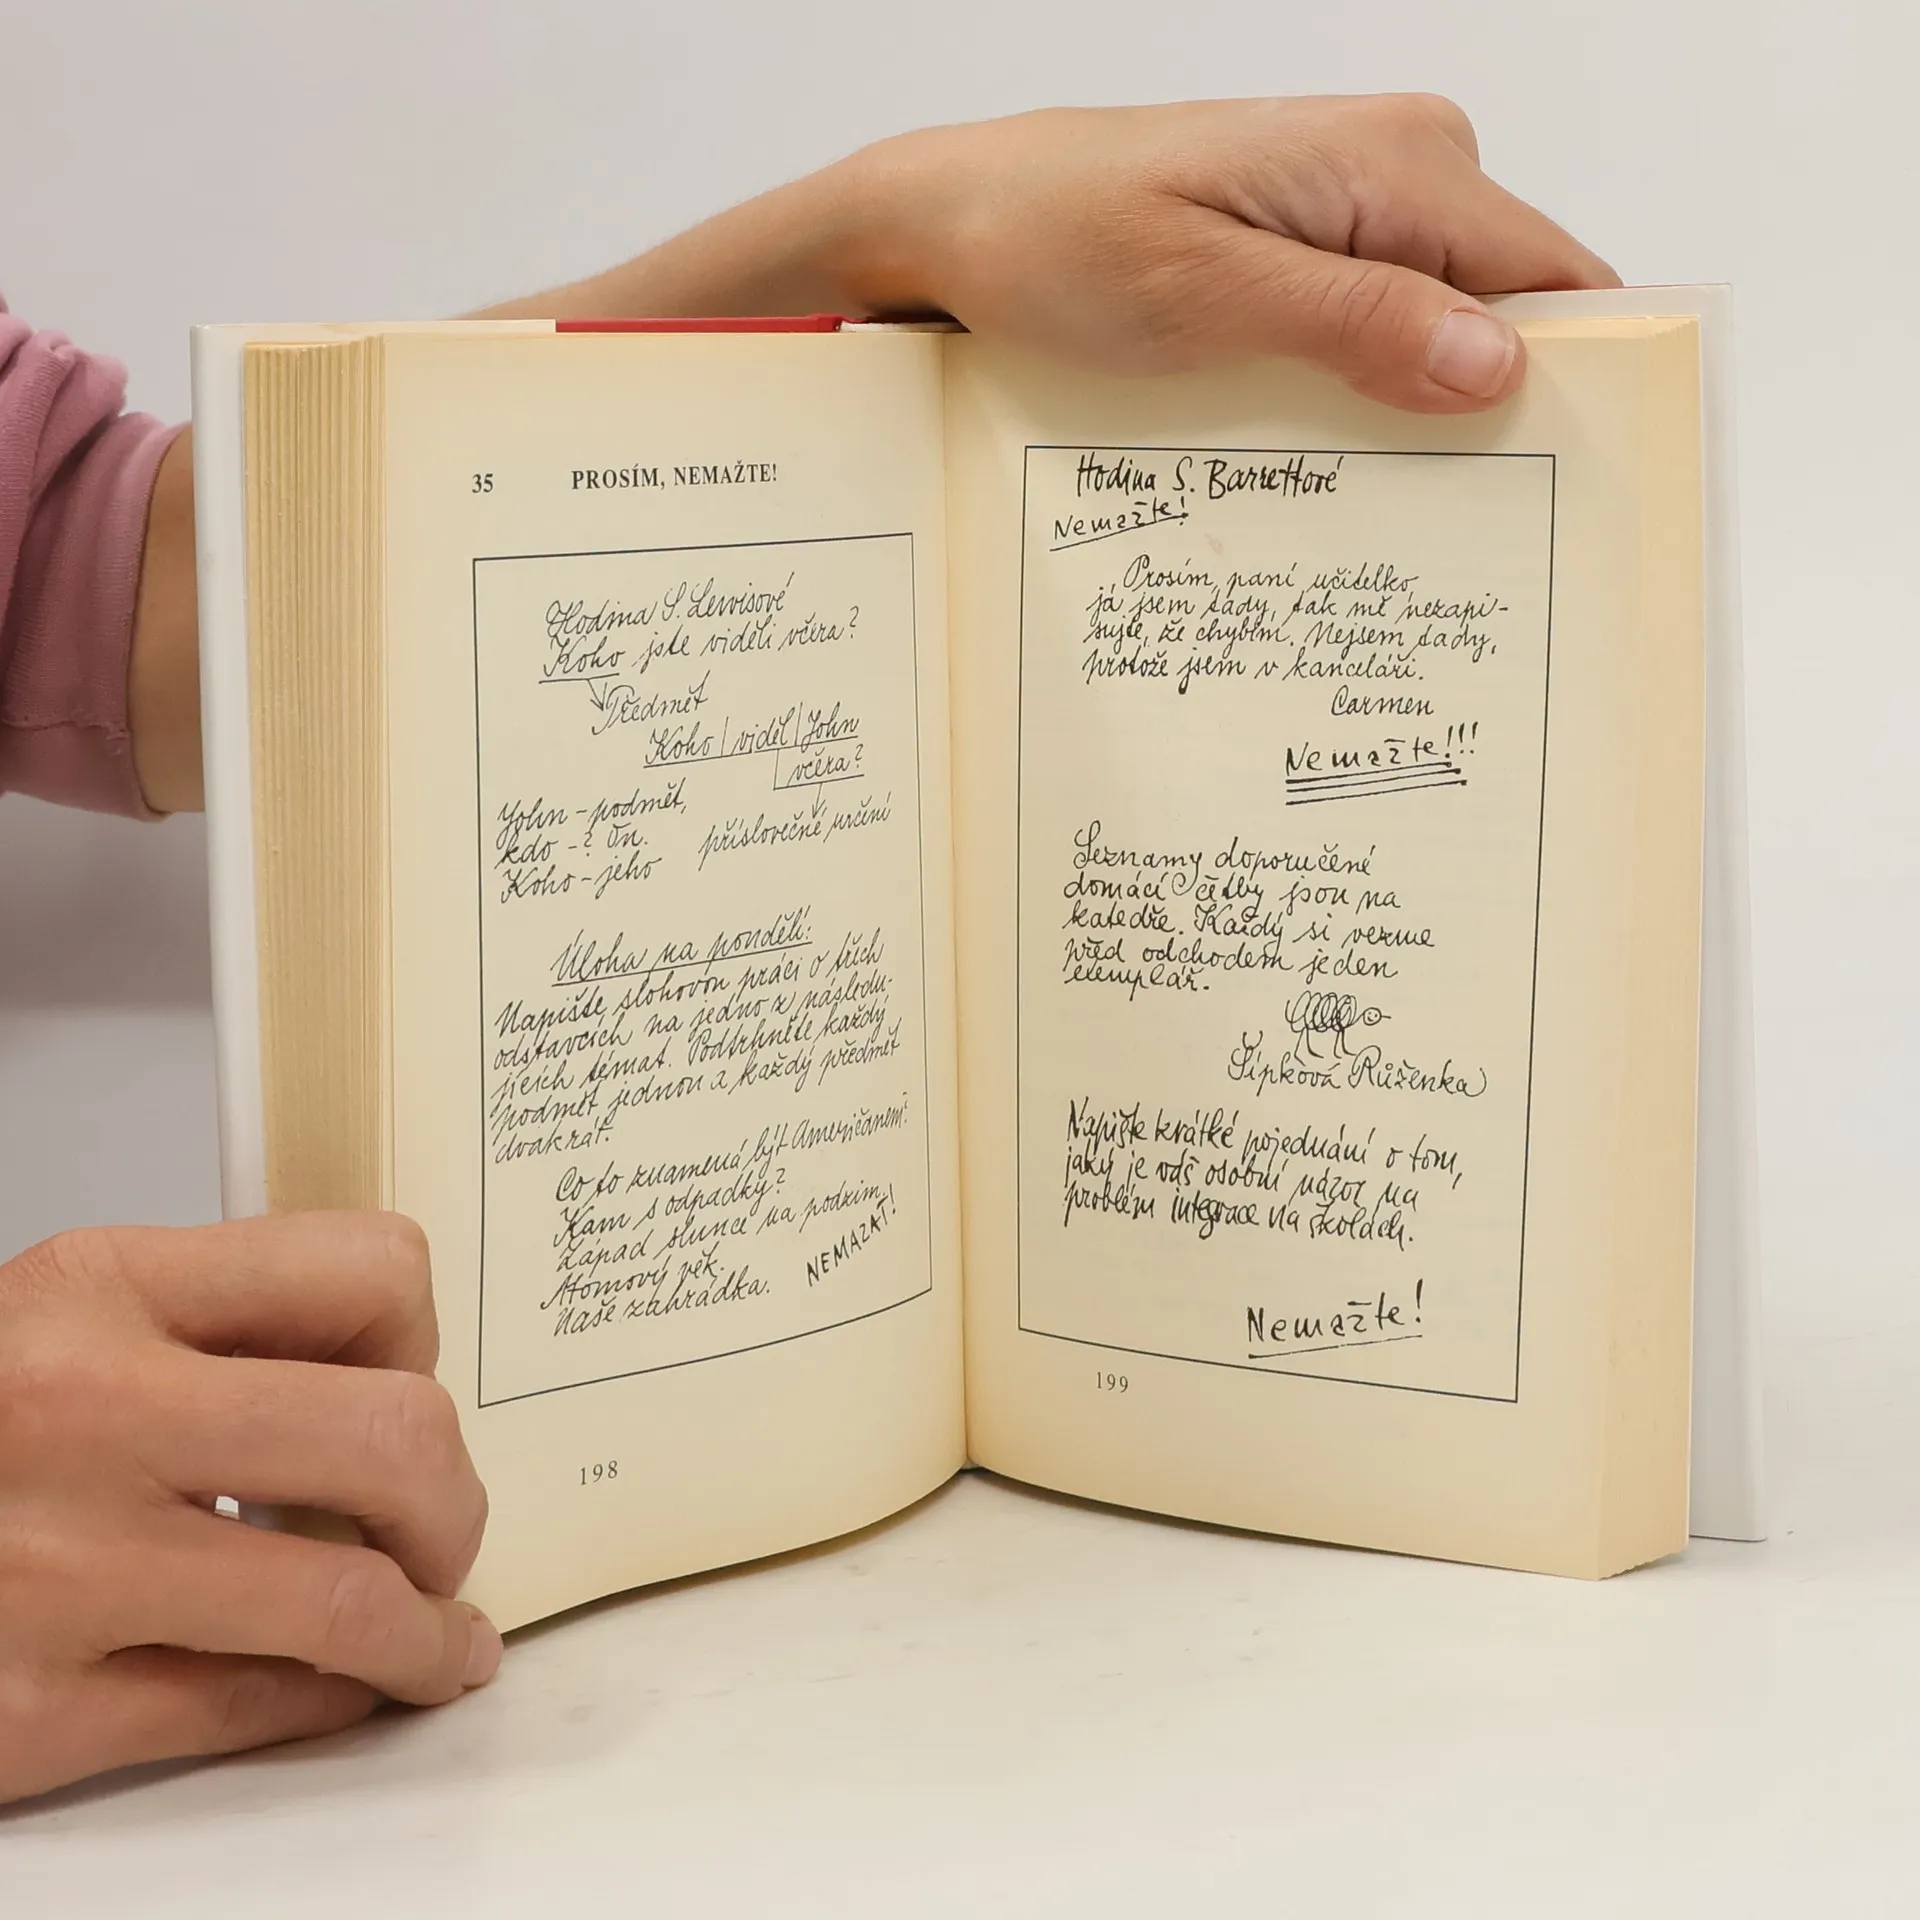 35 PROSÍM, NEMAŽTE!
Hodina S. Lewisové
Koho jste viděli včera?
Předmět
Koho | viděl | John
včera?
John – podmět,
kdo – ? On.
Koho – jeho
příslovečné určení
Úloha na pondělí:
Napište slohovou práci o třech
odstavcích na jedno z následu-
jících témat. Podtrhněte každý
podmět jednou a každý předmět
dvakrát.
Co to znamená být Američanem?
Kam s odpadky?
Západ slunce na podzim.
Atomový věk.
Naše zahrádka.
NEMAZAT!
198
Hodina S. Barrettové
Nemažte!
Prosím, paní učitelko,
já jsem tady, tak mě nezapi-
sujte, že chybím. Nejsem tady,
protože jsem v kanceláři.
Carmen
Nemažte!!!
Seznamy doporučené
domácí četby jsou na
katedře. Každý si vezme
před odchodem jeden
exemplář.
Šípková Růženka
Napište krátké pojednání o tom,
jaký je váš osobní názor na
problém integrace na školách.
Nemažte!
199